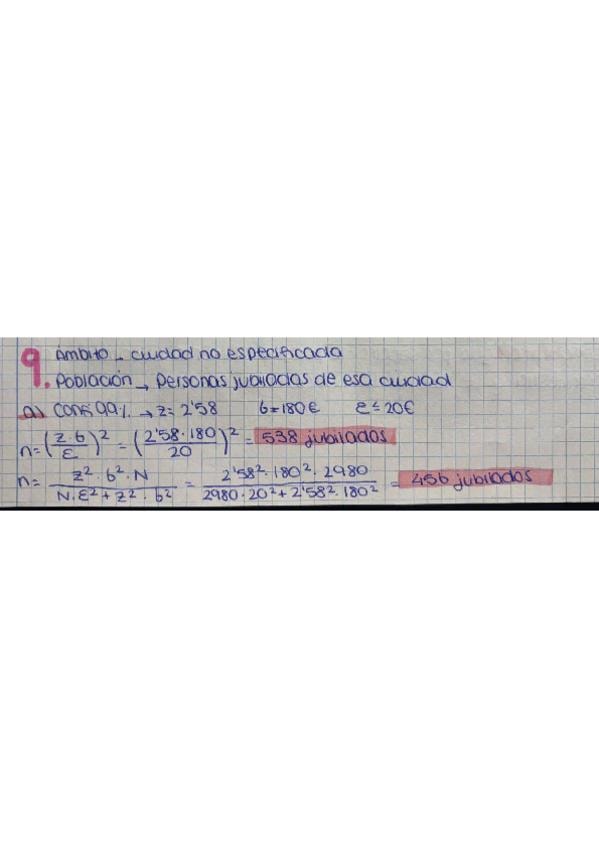 9. Ámbito → ciudad no especificada
Población → Personas jubiladas de esa ciudad
a) Conf: 99% → z = 2'58 б = 180€ ε ≤ 20€
n = (z·б/ε)² = (2'58·180/20)² = 538 jubilados
n = z²·б²·N/N·ε² + z²·б² = 2'58²·180²·2980/2980·20² + 2'58²·180² = 456 jubilados